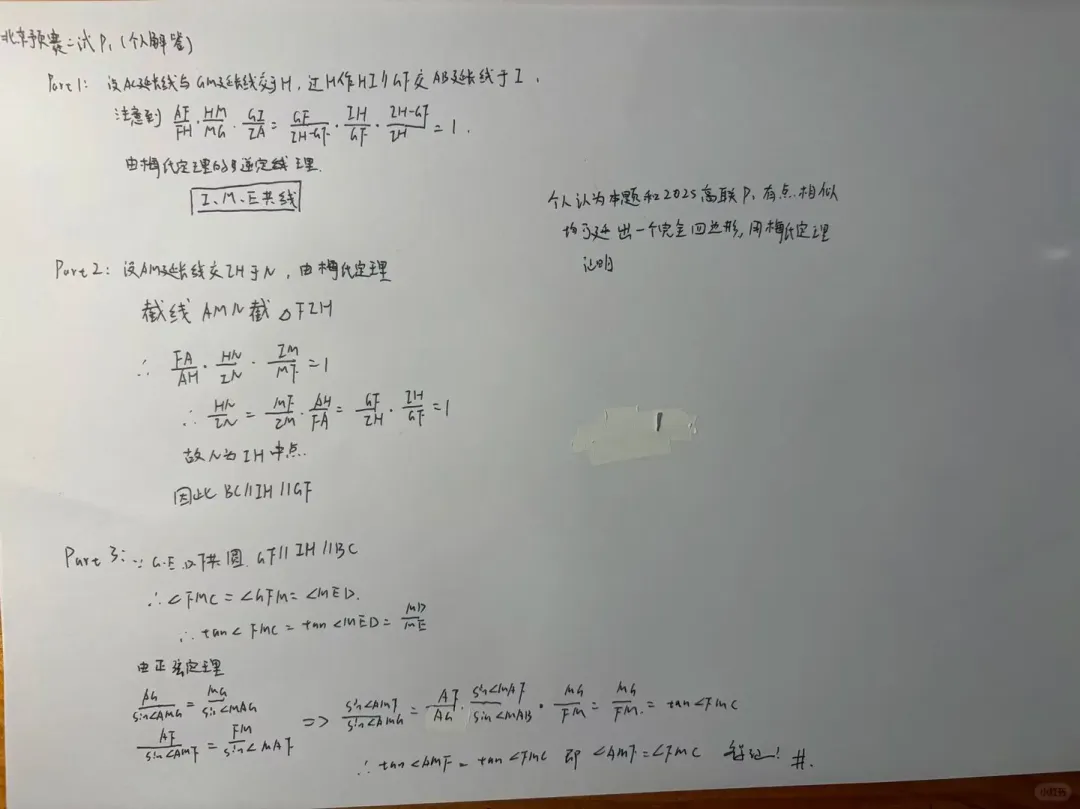 北京预赛二试P₁(个人解答)
Part 1: 设AC延长线与GM延长线交于H,过H作HI∥GF交AB延长线于I.
注意到 AF/FH · HM/MG · GI/IA = GF/(IH-GF) · IH/GF · (IH-GF)/IH = 1.
由梅氏定理的逆定理
I、M、E共线
个人认为本题和2025高联P₁有点相似
均可延出一个完全四边形,用梅氏定理
证明
Part 2: 设AM延长线交IH于N,由梅氏定理
截线 AMN截△FIH
∴ FA/AH · HN/IN · IM/MF = 1
∴ HN/IN = MF/IM · AH/FA = GF/IH · IH/GF = 1
故N为IH中点.
因此BC∥IH∥GF
Part 3: ∵ G.E.D.F共圆. GF∥IH∥BC
∴∠FMC=∠GFM=∠MED.
∴tan∠FMC=tan∠MED= MD/ME
由正弦定理
AG/sin∠AMG = MG/sin∠MAG
AF/sin∠AMF = FM/sin∠MAF
=> sin∠AMF/sin∠AMG = AF/AG · sin∠MAF/sin∠MAB · MG/FM = MG/FM. = tan∠FMC
∴ tan∠AMF = tan∠FMC 即 ∠AMF=∠FMC 得证! #.
小红书